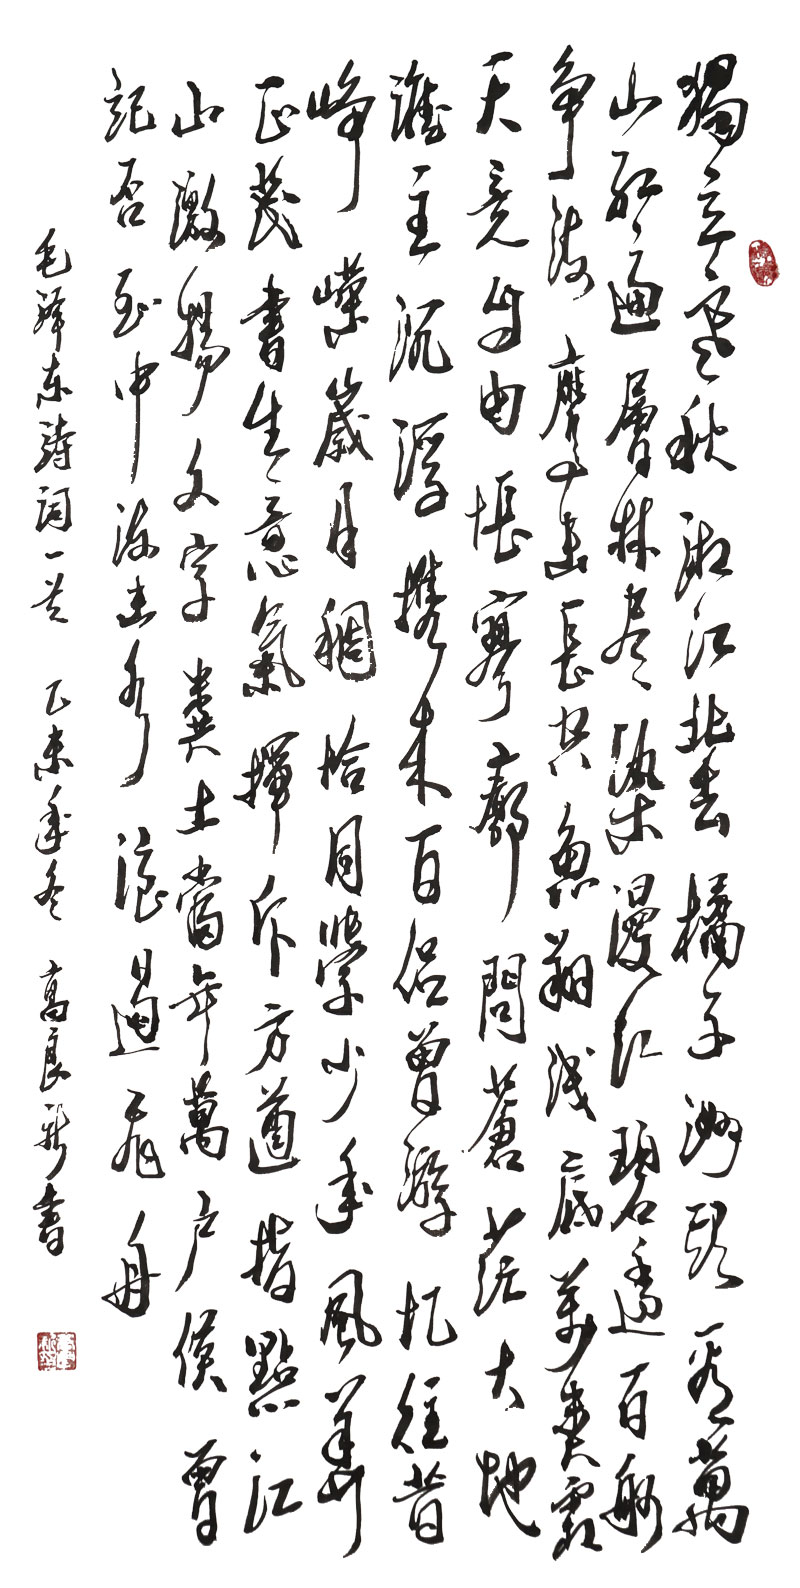 獨立寒秋湘江北去橘子洲頭看萬
山紅遍層林尽染漫江碧透百舸
争流鷹击長空魚翔浅底萬類霜
天竞自由悵寥廓問蒼茫大地
誰主沉浮攜来百侣曾游忆往昔
峥嶸歲月稠恰同學少年風華
正茂書生意氣揮斥方遒指點江
山激揚文字糞土當年萬户侯曾
記否到中流击水浪遏飛舟
毛泽东詩词一首 乙未年冬 高良新書